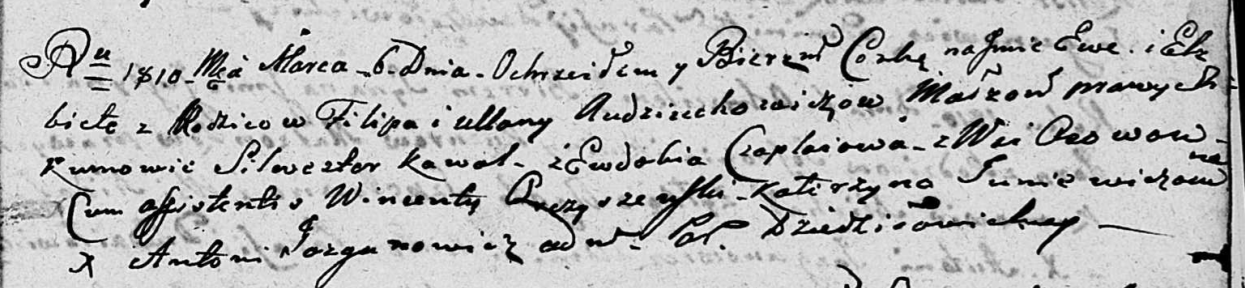 Ru 1810 Mca Marca 6 Dnia Ochrzciłem y Bierzm Corkę na Jmie Ewe i Elz
bietę z Rodzicow Filipa i Ullany Audziuchowiczow Małżow prawych
Kumowie Silwester Kawal z Ewdokia Czaplaiowa z Wsi Osowow
Cum assistentis Wincenty Katerzyna Juniewiczowna
X Antoni Jozganowicz adm Pol Dziedziłowickiey